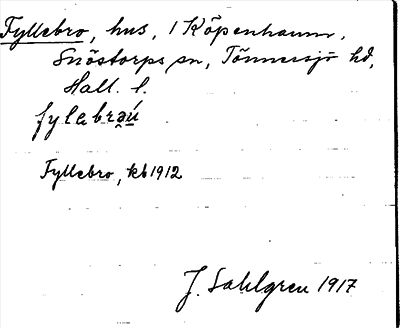 Fyllebro, hus, i Köpenhamn,
Snöstorps sn, Tönnersjö hd,
Hall. l.
fylebrǝú
Fyllebro, kb 1912
J. Sahlgren 1917